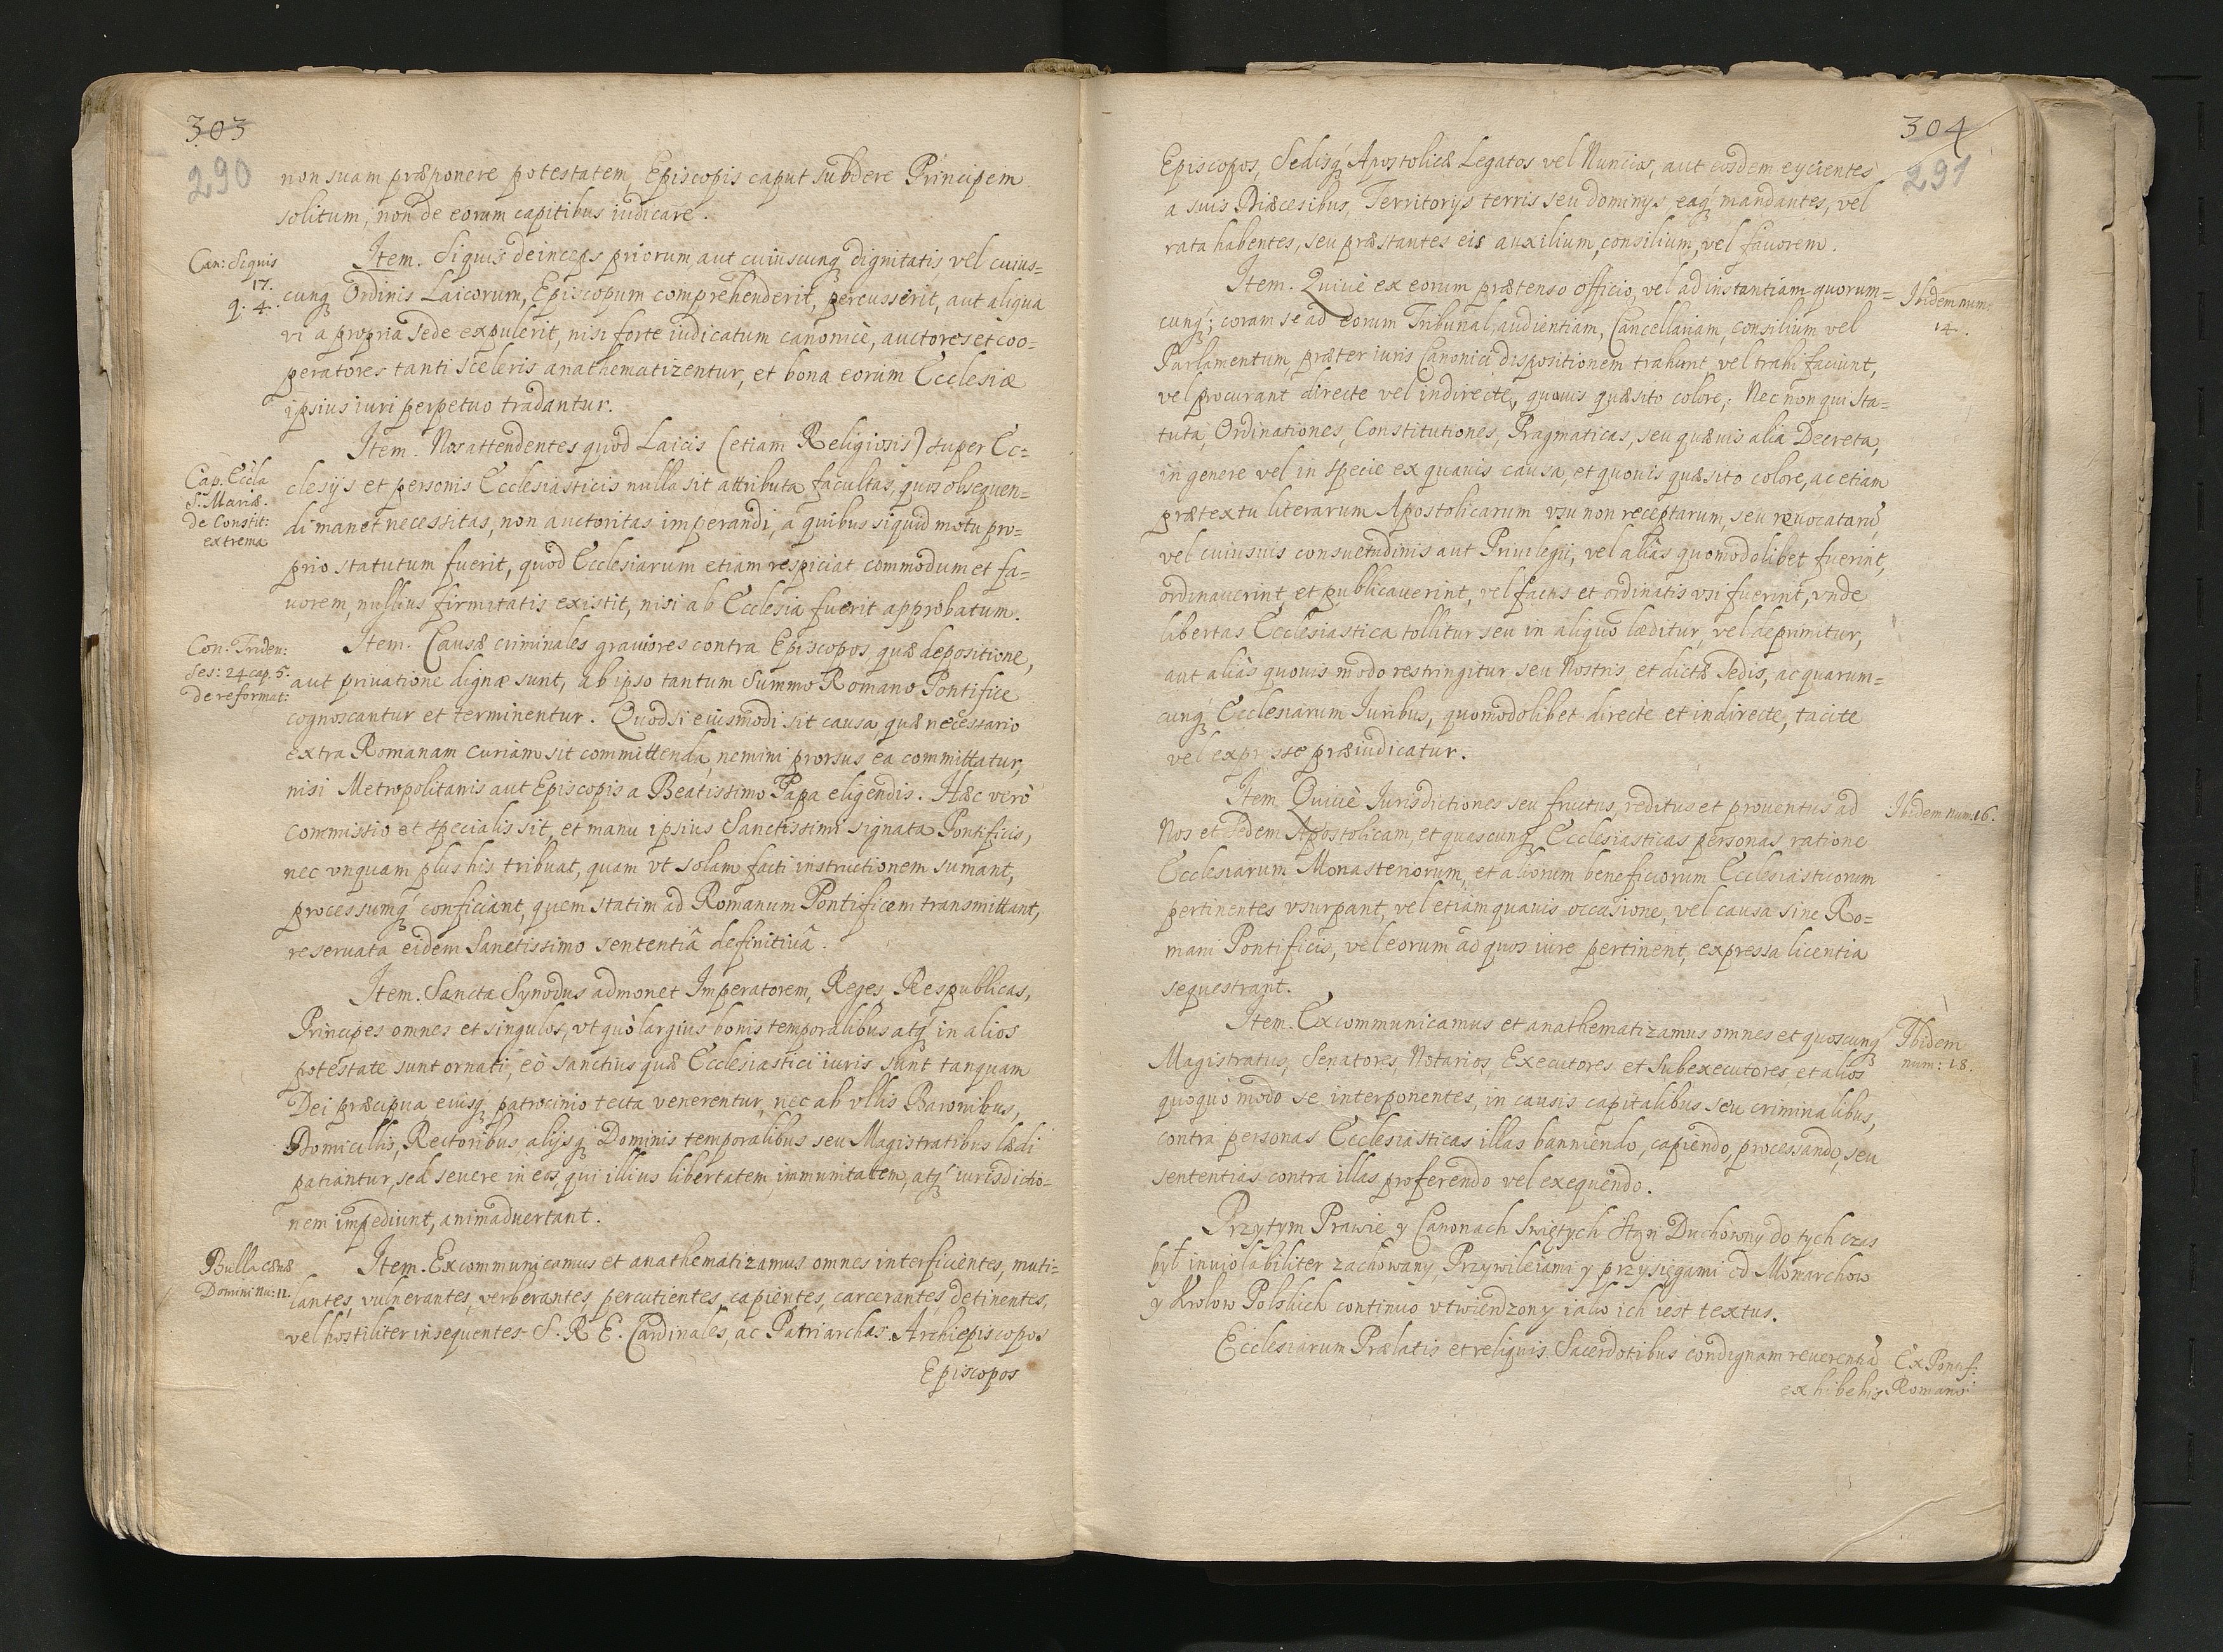 303
290
non suam præponere potestatem, Episcopis caput subdere Principem
solitum, non de eorum capitibus iudicare.
Can: Siquis
17.
q. 4.
Item. Siquis deinceps priorum aut cuiuscunq dignitatis vel cuius=
cunq Ordinis Laicorum, Episcopum comprehenderit, percusserit, aut aliqua
vi a propria sede expulerit, nisi forte iudicatum canonicè, auctores et coo=
peratores tanti sceleris anathematizentur, et bona eorum Ecclesiæ
ipsius iuri perpetuo tradantur.
Cap. Eccla
S. Mariæ.
de Constit:
extrema
Item. Nos attendentes quod Laicis (etiam Religiosis) super Ec=
clesijs et personis Ecclesiasticis nulla sit attributa facultas, quos obsequen=
di manet necessitas, non auctoritas imperandi, a quibus siquid motu pro=
prio statutum fuerit, quod Ecclesiarum etiam respiciat commodum et fa=
uorem, nullius firmitatis existit, nisi ab Ecclesia fuerit approbatum.
Con: Triden:
Ses: 24 cap. 5.
de reformat:
Item. Causæ criminales grauiores contra Episcopos quæ depositione,
aut priuatione dignæ sunt, ab ipso tantum Summo Romano Pontifice
cognoscantur et terminentur. Quodsi eiusmodi sit causa, quæ necessario
extra Romanam curiam sit committenda, nemini prorsus ea committatur,
nisi Metropolitanis aut Episcopis a Beatissimo Papa eligendis. Hæc verò
commissio et specialis sit, et manu ipsius Sanctissimi signata Pontificis,
nec vnquam plus his tribuat, quam vt solam facti instructionem sumant,
processumq conficiant, quem statim ad Romanum Pontificem transmittant,
reseruata eidem Sanctissimo sententiâ definitiuâ.
Item. Sancta Synodus admonet Imperatorem, Reges, Respublicas,
Principes omnes et singulos, vt quò largius bonis temporalibus atq in alios
potestate sunt ornati, eò sanctius quæ Ecclesiastici iuris sunt tanquam
Dei præcipua, eiusq patrocinio tecta venerentur, nec ab vllis Baronibus,
Domicellis, Rectoribus alijsq Dominis temporalibus seu Magistratibus lædi
patiantur, sed seuere in eos, qui illius libertatem, immunitatem, atq iurisdictio=
nem impediunt, animaduertant.
Bulla cænæ
Domini nu: 11.
Item. Excommunicamus et anathematizamus omnes interficientes, muti=
lantes, vulnerantes, verberantes, percutientes, capientes, carcerantes, detinentes,
vel hostiliter insequentes S. R. E. Cardinales, ac Patriarchas. Archiepiscopos
Episcopos
304
291
Episcopos, Sedisq Apostolicæ Legatos vel Nuncios, aut eosdem eycientes
a suis Diæcesibus, Territorijs terris seu dominijs, eaq mandantes, vel
rata habentes, seu præstantes eis auxilium, consilium, vel fauorem.
Item. Quiuè ex eorum prætenso officio, vel ad instantiam quorum=
cunq; coram se ad eorum Tribunal, audientiam, Cancellariam, consilium vel
Parlamentum, præter iuris Canonici dispositionem trahunt, vel trahi faciunt,
vel procurant directe vel indirecte, quouis quæsito colore; Nec non qui sta=
tuta, Ordinationes, Constitutiones, Pragmaticas, seu quæuis alia Decreta,
in genere vel in specie ex quauis causa, et quouis quæsito colore, ac etiam
prætextu literarum Apostolicarum vsu non receptarum, seu reuocatarũ,
vel cuiusuis consuetudinis aut Priuilegii, vel aliàs quomodolibet fuerint,
ordinauerint, et publicauerint, vel factis et ordinatis vsi fuerint, vnde
libertas Ecclesiastica tollitur seu in aliquo læditur, vel deprimitur,
aut aliàs quouis modo restringitur, seu Nostris, et dictæ Sedis, ac quarum=
cunq Ecclesiarum Iuribus, quomodolibet directè et indirecte, tacite
vel expresse præiudicatur.
Ibidem num:
14.
Item Quiuè Iurisdictiones seu fructus, reditus et prouentus ad
Nos et Sedem Apostolicam, et quascunq Ecclesiasticas personas ratione
Ecclesiarum Monasteriorum, et aliorum beneficiorum Ecclesiasticorum
pertinentes vsurpant, vel etiam quauis occasione, vel causa sine Ro=
mani Pontificis, vel eorum ad quos iure pertinent, expressa licentia
sequestrant.
Ibidem num: 16.
Item. Excommunicamus et anathematizamus omnes et quoscunq
Magistratus, Senatores, Notarios, Executores et Subexecutores, et alios
quoquo modo se interponentes, in causis capitalibus seu criminalibus,
contra personas Ecclesiasticas illas banniendo, capiendo, processando, seu
sententias contra illas proferendo vel exequendo.
Ibidem
num: 18.
Przytym Prawie y Canonach Swiętych Stan Duchowny do tych czas
był inuiolabiliter zachowany, Przywileiami y przysięgami od Monarchow
y Krolow Polskich continuo vtwierdzony iako ich iest textus.
Ecclesiarum Prælatis et reliquis Sacerdotibus condignam reuerentiã
exhibebis
Ex Pontif:
Romano